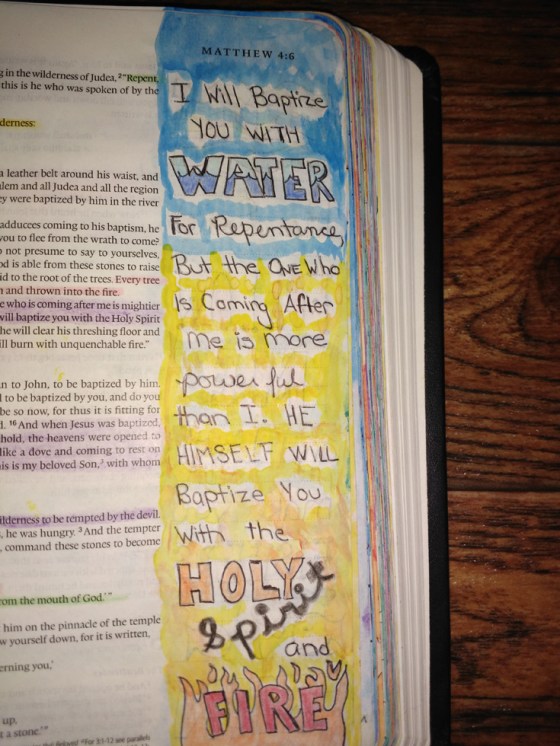 MATTHEW 4:6
g in the wilderness of Judea, 2 "Repent,
this is he who was spoken of by the
derness:
a leather belt around his waist, and
lem and all Judea and all the region
ey were baptized by him in the river
adducees coming to his baptism, he
you to flee from the wrath to come?
o not presume to say to yourselves,
od is able from these stones to raise
id to the root of the trees. Every tree
n and thrown into the fire.
e who is coming after me is mightier
will baptize you with the Holy Spirit
he will clear his threshing floor and
ill burn with unquenchable fire."
n to John, to be baptized by him.
d to be baptized by you, and do you
be so now, for thus it is fitting for
d. 16 And when Jesus was baptized,
hold, the heavens were opened to
like a dove and coming to rest on
is is my beloved Son, with whom
ilderness to be tempted by the devil.
, he was hungry. 3 And the tempter
, command these stones to become
rom the mouth of God.'"
him on the pinnacle of the temple
w yourself down, for it is written,
erning you,'
up,
t a stone.'"
I Will Baptize
YOU WITH
WATER
For Repentance,
But the ONE Who
Is Coming After
me is more
powerful
than I. HE
HIMSELF WILL
Baptize You
With the
HOLY
Spirit
and
FIRE